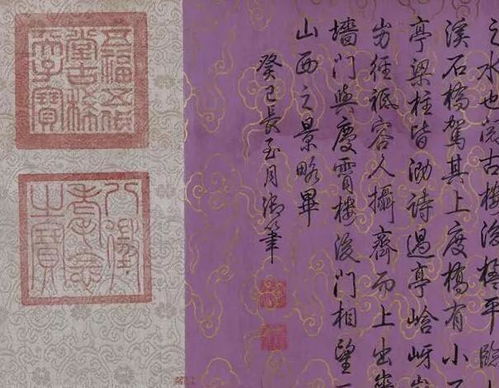 之水也
溪石橋駕其上度橋有小
亭梁柱皆泐詩過亭峆岈
劣徑祇容人攝齊而上出
墻門與慶霄樓後門相望
山西之景略畢
癸巳長至月御筆
五福五代
堂古稀
天子寶
八徵
耄念
之寶